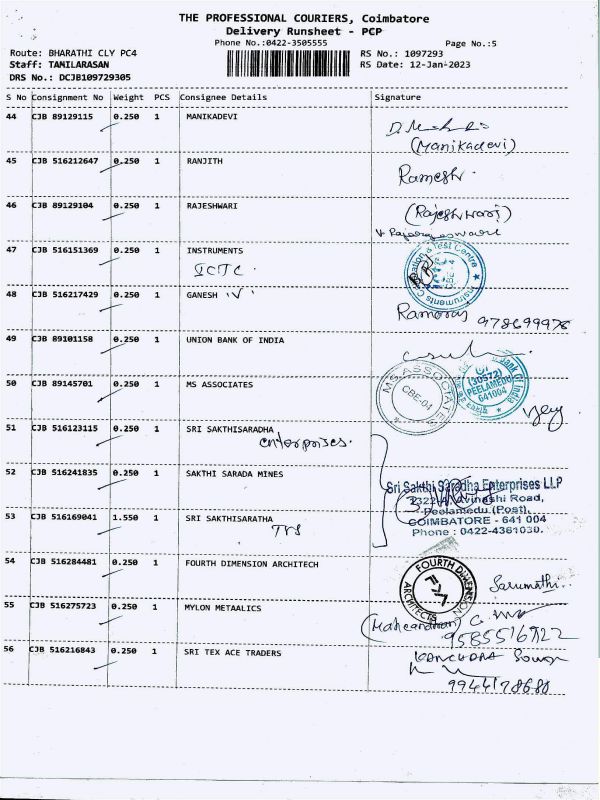 THE PROFESSIONAL COURIERS, Coimbatore
Delivery Runsheet - PCP
Phone No.:0422-3505555
Page No.:5
Route: BHARATHI CLY PC4
RS No.: 1097293
Staff: TAMILARASAN
RS Date: 12-Jan-2023
DRS No.: DCJB109729305
S No Consignment No Weight PCS Consignee Details Signature
44 CJB 89129115 0.250 1 MANIKADEVI
(Manikadevi)
45 CJB 516212647 0.250 1 RANJITH
Ramesh
46 CJB 89129104 0.250 1 RAJESHWARI
47 CJB 516151369 0.250 1 INSTRUMENTS
& Test Centre
Instruments
48 CJB 516217429 0.250 1 GANESH V
49 CJB 89101158 0.250 1 UNION BANK OF INDIA
(30572)
PEELAMEDU
641004
Bank of India
50 CJB 89145701 0.250 1 MS ASSOCIATES
MS ASSOCIATES
CBE-04
51 CJB 516123115 0.250 1 SRI SAKTHISARADHA
enterprises.
52 CJB 516241835 0.250 1 SAKTHI SARADA MINES
Sri Sakthi Saradha Enterprises LLP
Avinashi Road,
Peelamedu (Post),
COIMBATORE - 641 004
Phone : 0422-4361030.
53 CJB 516169041 1.550 1 SRI SAKTHISARATHA
TVS
54 CJB 516284481 0.250 1 FOURTH DIMENSION ARCHITECH
FOURTH DIMENSION
ARCHITECTS
Sarumathi.
55 CJB 516275723 0.250 1 MYLON METAALICS
56 CJB 516216843 0.250 1 SRI TEX ACE TRADERS